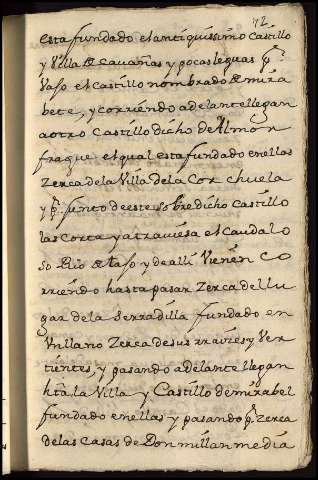 72
esta fundado el antiquissimo Castillo
y Villa de Cauañas y pocas leguas pr
vaso el Castillo nombrado de mira
bete, y corriendo adelante llegan
a otro Castillo dicho de Almon
fraque el qual esta fundado en ellas
Zerca de la Villa de la Cor chuela
y pr junto de este sobre dicho Castillo
las corta y atrauiesa el Caudalo
so Rio de tajo y de alli Vienen co
rriendo hasta pasar Zerca del lu
gar de la Serradilla fundado en
Vn llano Zerca de sus rraices y Ver
tientes, y pasando adelante llegan
hta la Villa y Castillo de mirabel
fundado en ellas y pasando pr Zerca
de las Casas de Don millan media